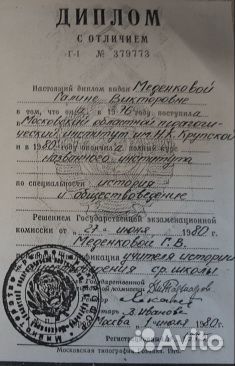 ДИПЛОМ
С ОТЛИЧИЕМ
Г-I № 379773
Настоящий диплом выдан Меденковой
Галине Викторовне
в том, что она в 1976 году поступила
в Московский областной педагоги-
ческий институт им. Н.К. Крупской
и в 1980 году окончила полный курс
названного института
по специальности история
и обществоведение
Решением Государственной экзаменационной
комиссии от 27 июня 1980 г.
Меденковой Г.В.
квалификация учителя истории
ср. школы
Государственной
Москва 1 1980 г.
Московская типография Гознака. 1975.
Avito